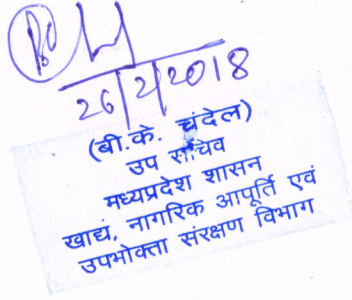 26/2/2018
(बी.के. चंदेल)
उप सचिव
मध्यप्रदेश शासन
खाद्य, नागरिक आपूर्ति एवं
उपभोक्ता संरक्षण विभाग